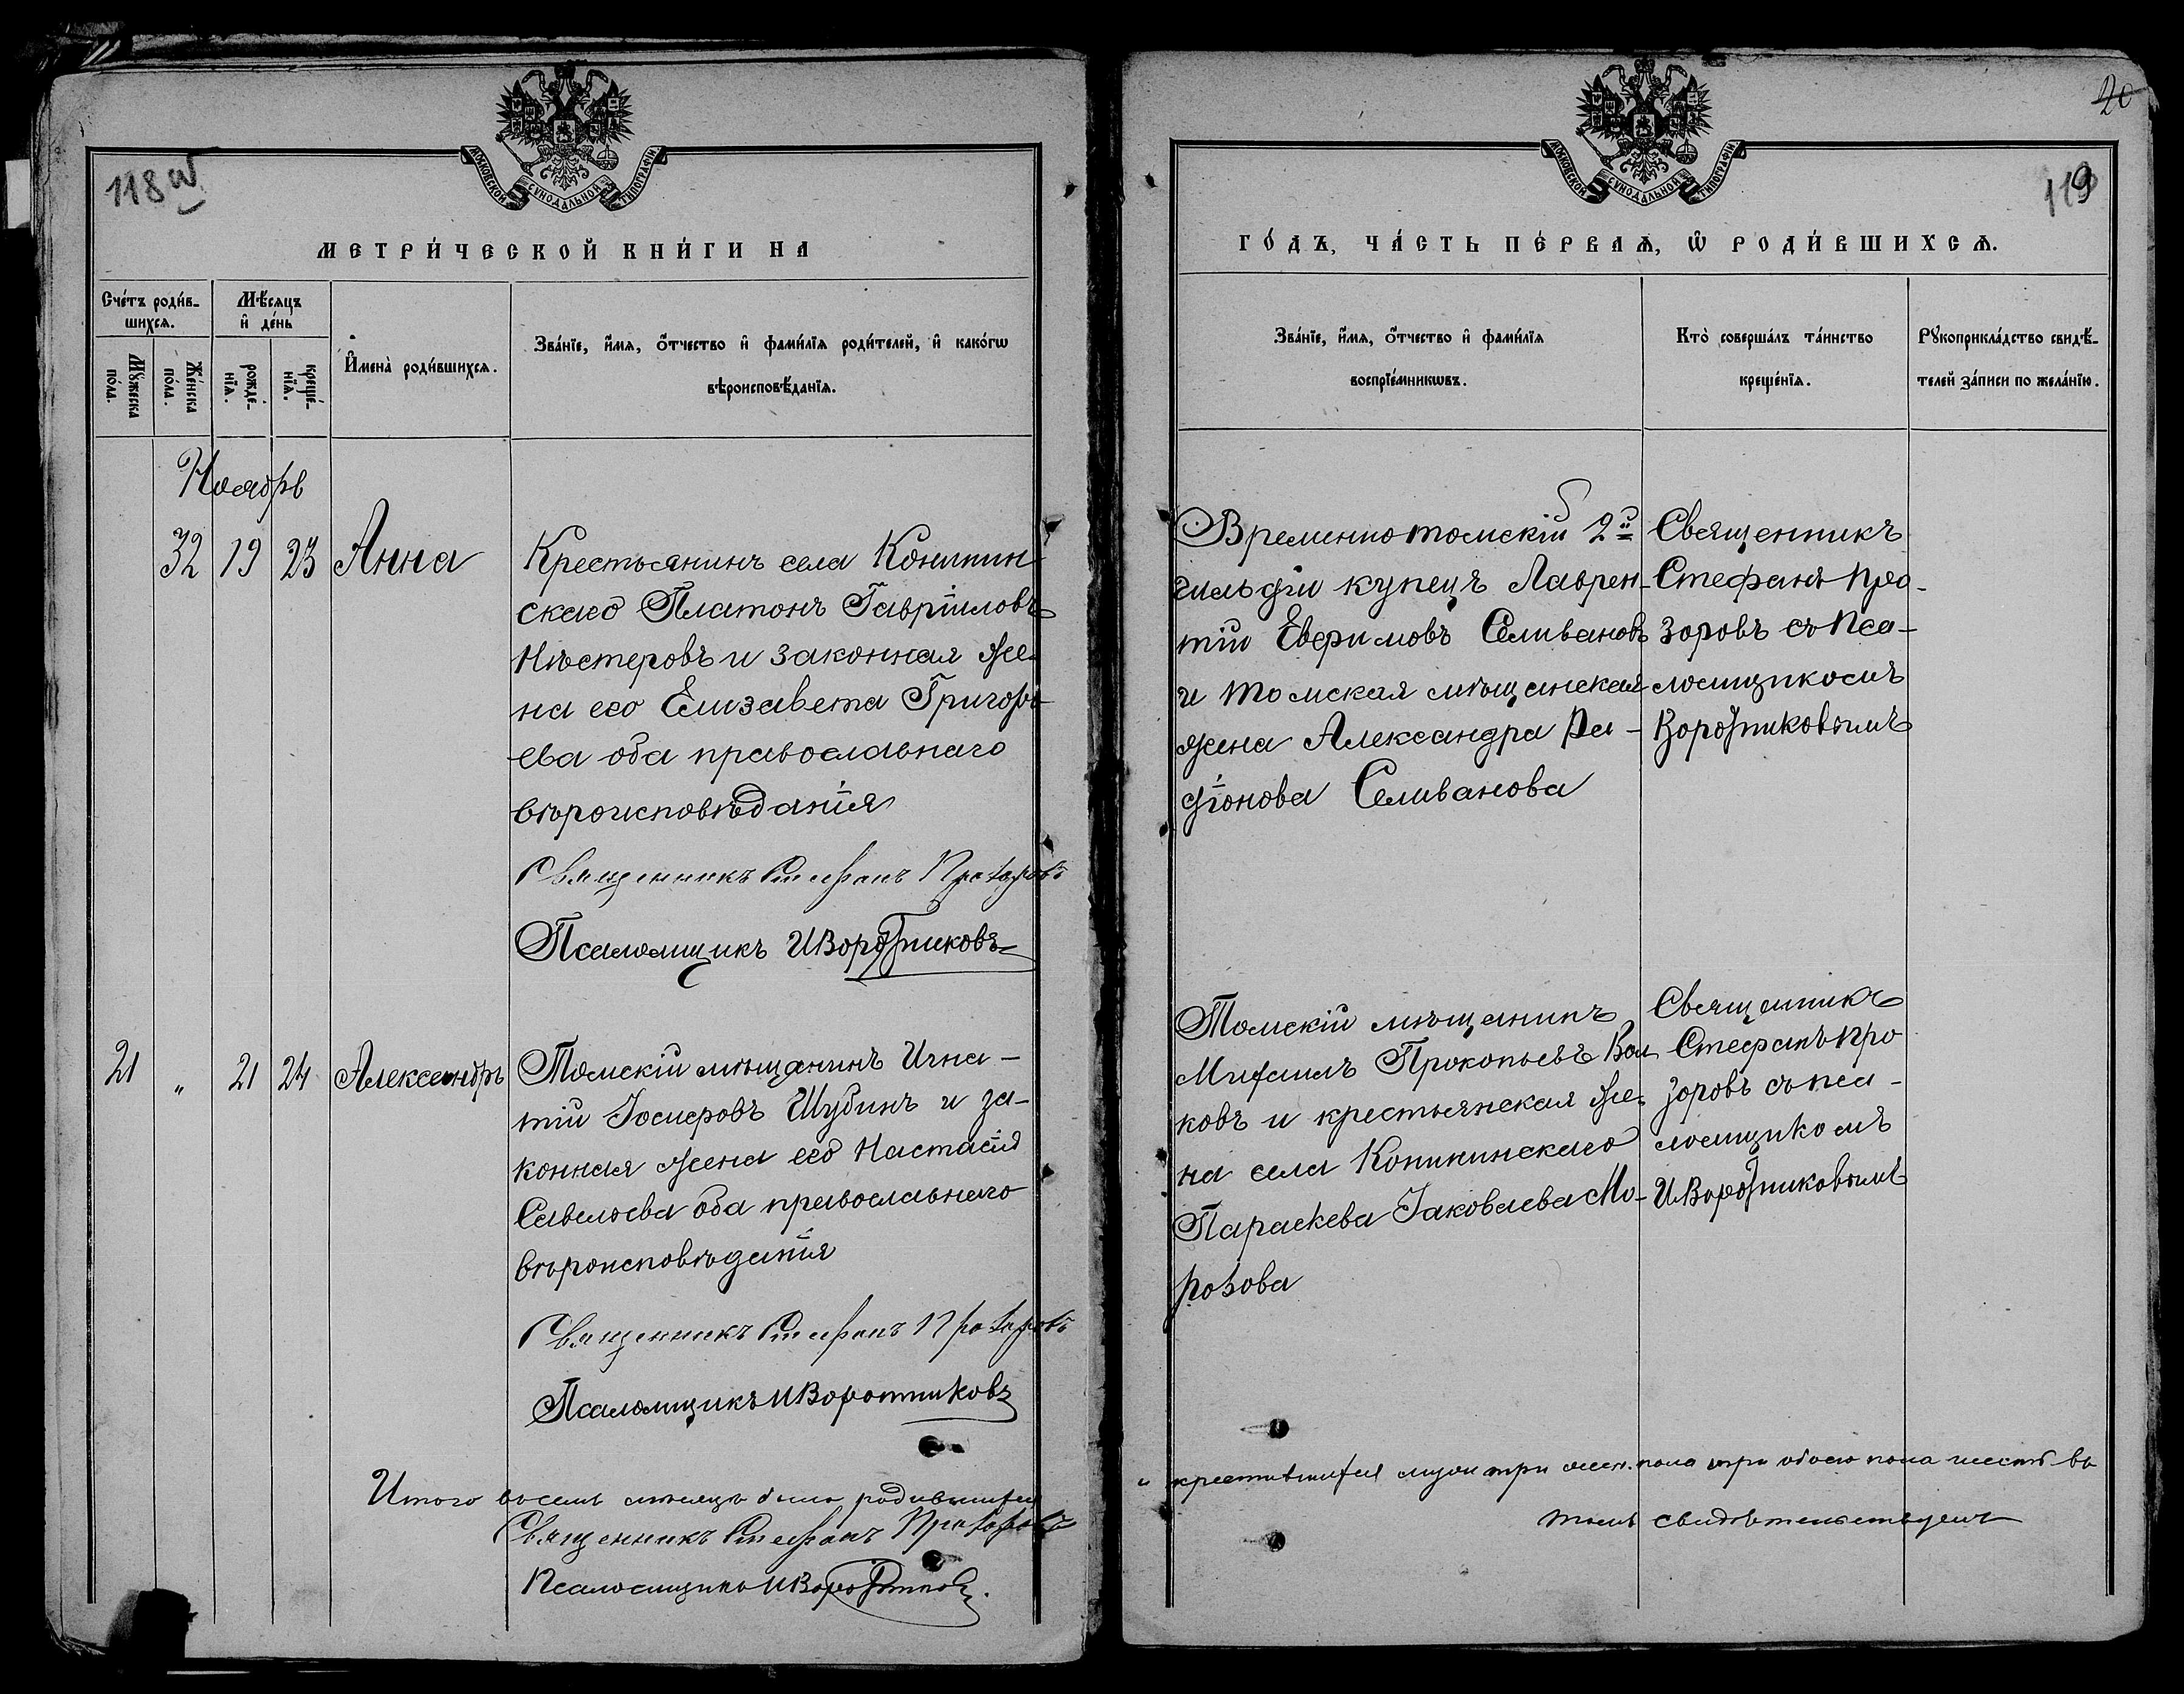 118 об
МОСКОВСКОЙ СѴНОДАЛЬНОЙ ТИПОГРАФІИ
МЕТРИ́ЧЕСКОЙ КНИ́ГИ НА
Сче́тъ роди́в-
шихсѧ.
Мѣ́сѧцъ
и҆ де́нь
Мꙋ́жеска
по́ла.
Же́нска
по́ла.
рожде́-
нїѧ.
креще́-
нїѧ.
И҆мена̀ роди́вшихсѧ.
Зва́нїе, и҆́мѧ, ѻ҆́тчество и҆ фами́лїѧ роди́телей, и҆ како́гѡ
вѣроисповѣ́данїѧ.
Ноябрь
32 19 23 Анна
Крестьянинъ села
скаго Платонъ Гавріиловъ
Нѣстеровъ и законная же-
на его Елизавета Григорь-
ева оба православнаго
вѣроисповѣданія
Священникъ Стефанъ Прозоровъ
Псаломщикъ ИВоротниковъ
21 „ 21 24 Александръ
Томскій мѣщанинъ Игна-
тій Іосифовъ Шубинъ и за-
конная жена его Настасія
Савельева оба православнаго
вѣроисповѣданія
Священникъ Стефанъ Прозоровъ
Псаломщикъ ИВоротниковъ
Итого восемь мѣсяцъ было родившихся
Священникъ Стефанъ Прозоровъ
Псаломщикъ ИВоротниковъ.
20
119
МОСКОВСКОЙ СѴНОДАЛЬНОЙ ТИПОГРАФІИ
ГО́ДЪ, ЧА́СТЬ ПЕ́РВАѦ, Ѽ РОДИ́ВШИХСѦ.
Зва́нїе, и҆́мѧ, ѻ҆́тчество и҆ фами́лїѧ
воспрїе́мникѡвъ.
Кто̀ соверша́лъ та́инство
креще́нїѧ.
Рꙋкоприкла́дство свидѣ́-
телей за́писи по жела́нїю.
Временно томскій 2й
гильдіи купецъ Лаврен-
тій Евфимовъ Селивановъ
и томская мѣщанская
жена Александра Ра-
діонова Селиванова
Священникъ
Стефанъ Про-
зоровъ съ пса-
ломщикомъ
Воротниковымъ
Томскій мѣщанинъ
Михаилъ Прокопьевъ Вол
ковъ и крестьянская же-
на села
Параскева Іаковлева Мо-
розова
Священникъ
Стефанъ Про
зоровъ съ пса-
ломщикомъ
ИВоротниковымъ
и крестившихся муж три жен. пола три обоего пола шесть въ
томъ свидѣтельствуемъ